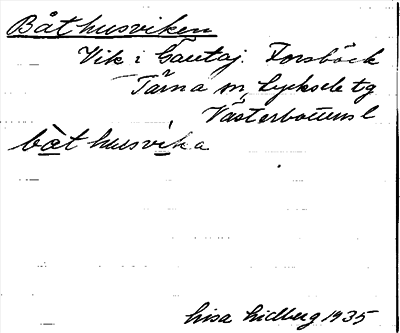 Båthusviken
Vik i Gautaj. Forsbäck
Tärna sn, Lycksele tg
Västerbottens l
båt husvika
Lisa Lidberg 1935